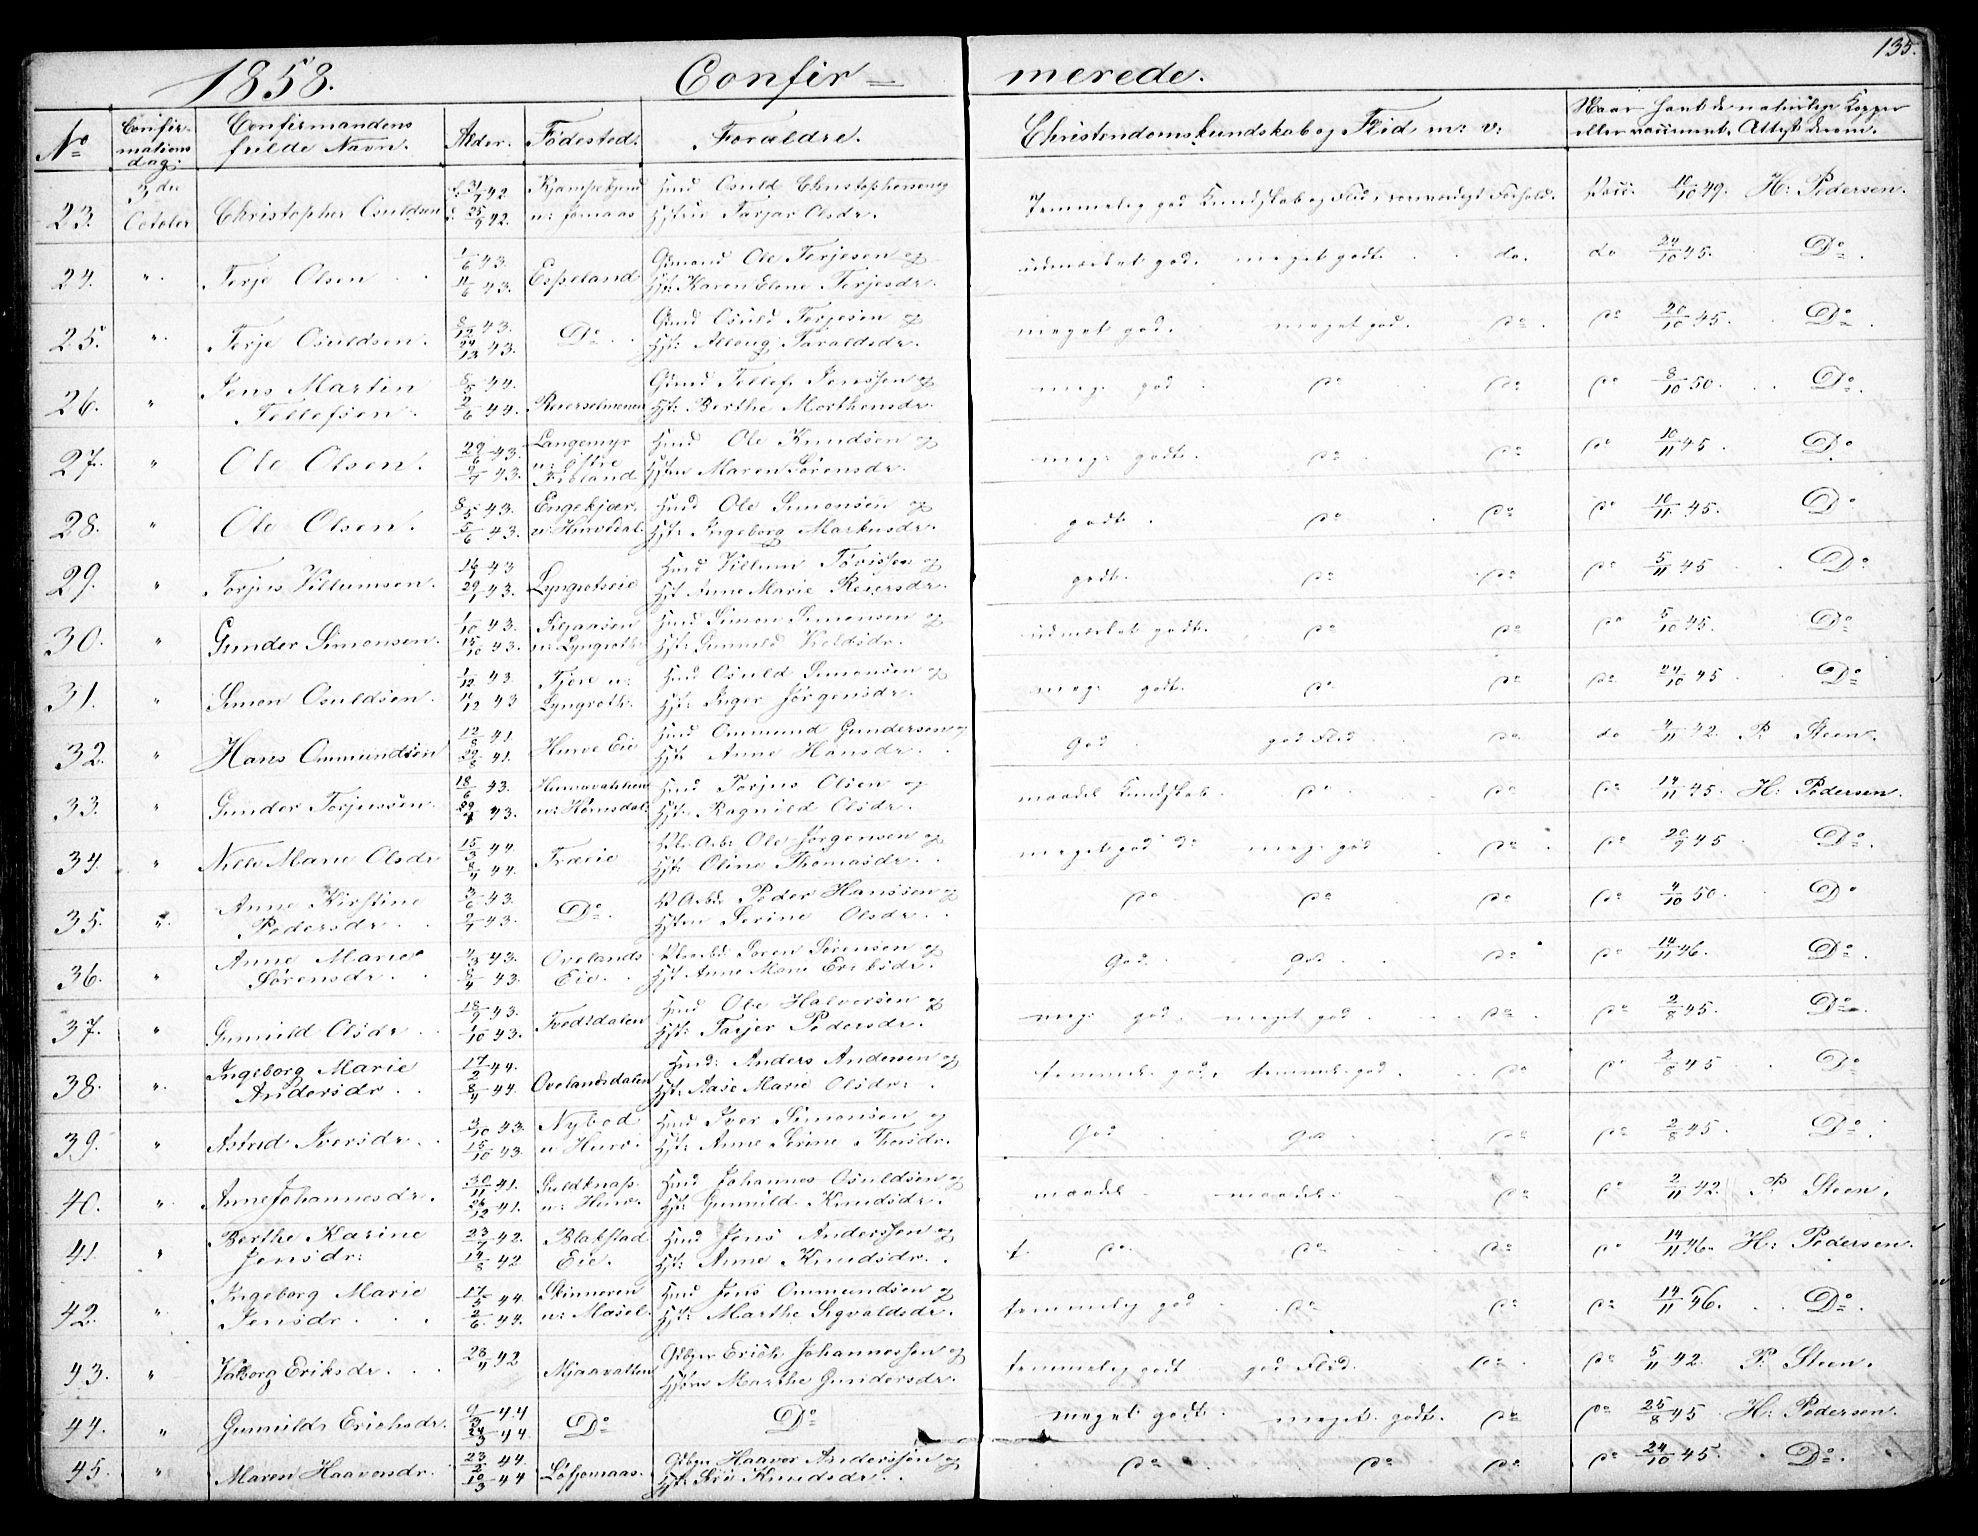 135.
1858. Confir= merede.
No Confirmations dag: Confirmandens fulde Navn. Alder. Fødested. Forældre. Christendomskundskab og Flid m: v: Naar havt de naturlige Kopper eller vaccineret. Attest derom.
23. 3die October Christopher Osuldsen 42. 42. Hmd Osuld Christophersen og Hstru Tarjer Olsdr. Temmelig god Kundskab og Flid, Forhold. Vacc: 10/10 49. H: Pedersen.
24. " Terje Olsen 1/6 43. 11/6 43. Espeland Gmand Ole Terjesen og Hst: Karen Elene Terjesdr. udmærket god. meget godt. do. do 24/10 45. Do
25. " Terje Osuldsen. 8/12 43. 43. Do Gmd Osuld Terjesen og Hst: Taraldsdr. meget god. meget god. Do. Do 20/10 45. Do
26. " Jens Martin Tellefsen. 8/5 44. 2/6 44. Reierselmoen Gmd Tellef Jenssen og Hst: Berthe Morthensdr. meg: god Do Do Do 8/10 50. Do
27. " Ole Olsen. 29/6 43. 9/7 43. Langemyr u: Østre Hmd Ole Knudsen og Hstru Maren Sørensdr. meg: godt. Do Do Do 10/11 45. Do
28. " Ole Olsen. 8/5 43. 5/6 43. Engekjær u: Hurvedal Hmd Ole Simonsen og Hst: Ingeborg Markusdr. godt. Do Do Do 10/11 45. Do
29. " Torjus Villumsen. 43 29/1 43. Lyngrotseie Hmd Villum og Hst Anne Marie Reiersdr. godt. Do Do Do 5/11 45 Do
30. " Gunder Simonsen. 1/10 43. 15/10 43. u: Lyngroth. Hmd Simon Simonsen og Hst: Gunuld Keldsdr. udmærket godt. Do Do Do 5/10 45. Do
31. " Simon Osuldsen. 1/12 43. 11/12 43 Fjere u: Lyngroth. Hmd Osuld Simonsen og Hst: Inger Jørgensdr. meg: godt. Do Do Do 24/10 45 Do
32. " Hans Ommundsen 12/8 41. 22/8 41. Hurve Eie Hmd Ommund Gundersen og Hst: Anne Hansdr. God god Flid Do do 4/11 42. P. Steen.
33. " Gunder Torjussen. 18/6 43. 43. u: Hømsdal. Hmd Torjus Olsen og Hst: Ragnild Olsdr. maadel Kundskab. Do Do Do 14/11 45. H: Pedersen.
34. " Nille Marie Olsdr 15/3 44. 8/4 44. Træeie Ole Jørgensen og Hst: Oline Thomasdr. meget god do meg: god Do Do 20/9 45 Do
35. " Anne Kirstine Pedersdr. 3/6 43. 2/7 43. Do Peder Hanssen og Hstru Serine Olsdr. Do Do Do Do 4/10 50. Do
36. " Anne Marie Sørensdr. 43. 43. Ovelands Eie. Soren Sørensen og Hst: Anne Marie Eriksdr. God. God Do Do 14/11 46. Do
37. " Gunuld Olsdr. 43. 1/10 43. Tvedsdalen Hmd Ole Halversen og Hst: Tarjer Pedersdr. meg: god. meget god. Do Do 2/8 45. Do
38. " Ingeborg Marie Andersdr. 17/2 44. 8/4 44. Ovelandsdalen Hmd: Anders Andersen og Hst: Aase Marie Olsdr: temmel: god, temmel: god. Do Do 2/8 45 Do
39. " Astrid Iversdr. 3/10 43. 15/10 43. Nybod u Hurv. Hmd Iver Simonsen og Hst: Anne Serine Thorsdr. God God Do Do 2/8 45. Do
40. " Anne Johannesdr. 30/11 41. 26/12 41. Guldknap. u: Hurv. Hmd Johannes Osuldsen og Hst: Gunuld Knudsdr. maadel maadel. Do Do 2/11 42. P. Steen.
41. " Berthe Karine Jensdr: 23/7 42. 14/8 42 Blakstad Eie. Hmd Jens Anderssen og Hst: Anne Knudsdr. t. Do. Do Do Do 14/11 46. H: Pedersen.
42. " Ingeborg Marie Jensdr. 17/5 44. 2/6 44. Skinneren u: Masel. Hmd Jens Ommundsen og Hst: Marthe Sigvaldsdr. temmelig god Do Do Do 14/11 46. Do
43. " Valborg Eriksdr. 28/11 42 Mjaavatten Gdbgr Erich Johannessen og Hstru Marthe Gundersdr. temmelig godt god Flid. Do Do 5/11 42. P. Steen.
44. " Gunuld Erichsdr. 9/3 44 24/3 44. Do Do meget godt. meget godt. Do Do 25/8 45 H: Pedersen.
45. " Maren Haavorsdr. 23/2 44. 10/3 44 Løfjomaas. Gdbgr Haavor Anderssen og Hst: Siri Knudsdr. Do Do Do Do 24/10 45. Do